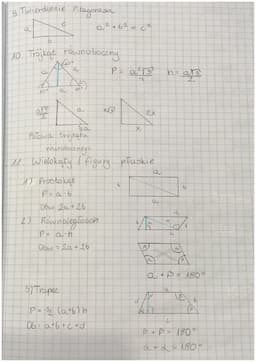 9. Twierdzenie Pitagorasa
a c b
a² + b² = c²
10. Trójkąt równoboczny
P = a²√3/4 h = a√3/2
a a a 60° 60°
a√3/2 a ½a
x√3 2x x
Połowa trójkąta
równobocznego
11. Wielokąty i figury płaskie
1) Prostokąt
a b b a
P = a·b
Obw = 2a+2b
2) Równoległobok
P = a·h
Obw = 2a+2b
α + β = 180°
3) Trapez
P = ½ (a+b)h
Ob = a+b+c+d
β + β = 180°
α + α = 180°